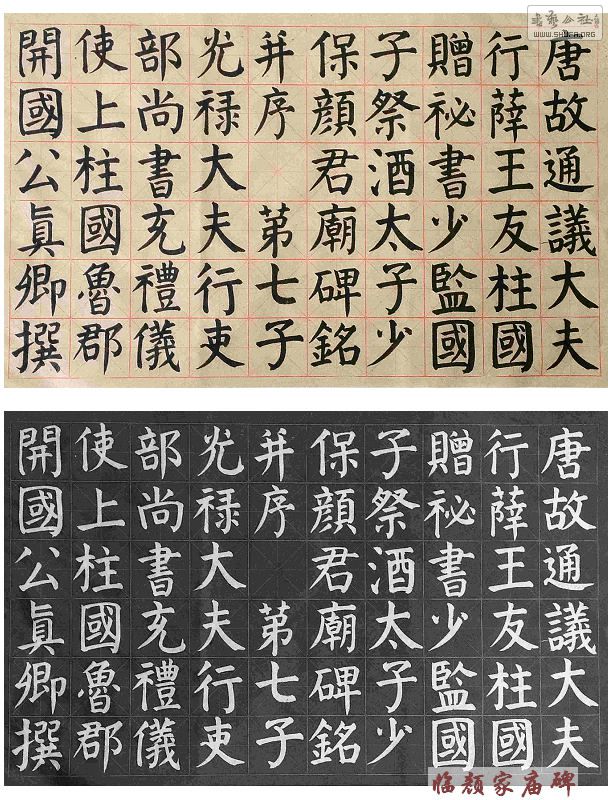 唐故通議大夫
行薛王友柱國
贈祕書少監國
子祭酒太子少
保顏君廟碑銘
并序 第七子
光祿大夫行吏
部尚書充禮儀
使上柱國魯郡
開國公真卿撰
唐故通議大夫
行薛王友柱國
贈祕書少監國
子祭酒太子少
保顏君廟碑銘
并序 第七子
光祿大夫行吏
部尚書充禮儀
使上柱國魯郡
開國公真卿撰
WWW.SHUFA.ORG
临颜家庙碑